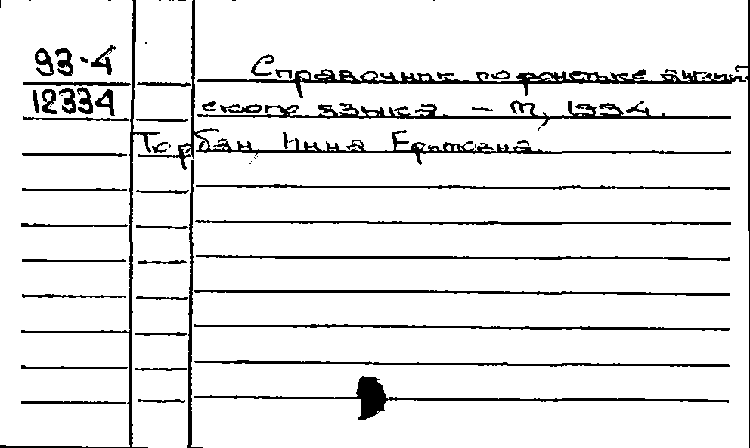 93-4 Справочник по фонетике англий-
12334 ского языка. – М, 1994.
Торбан, Инна Ефимовна.